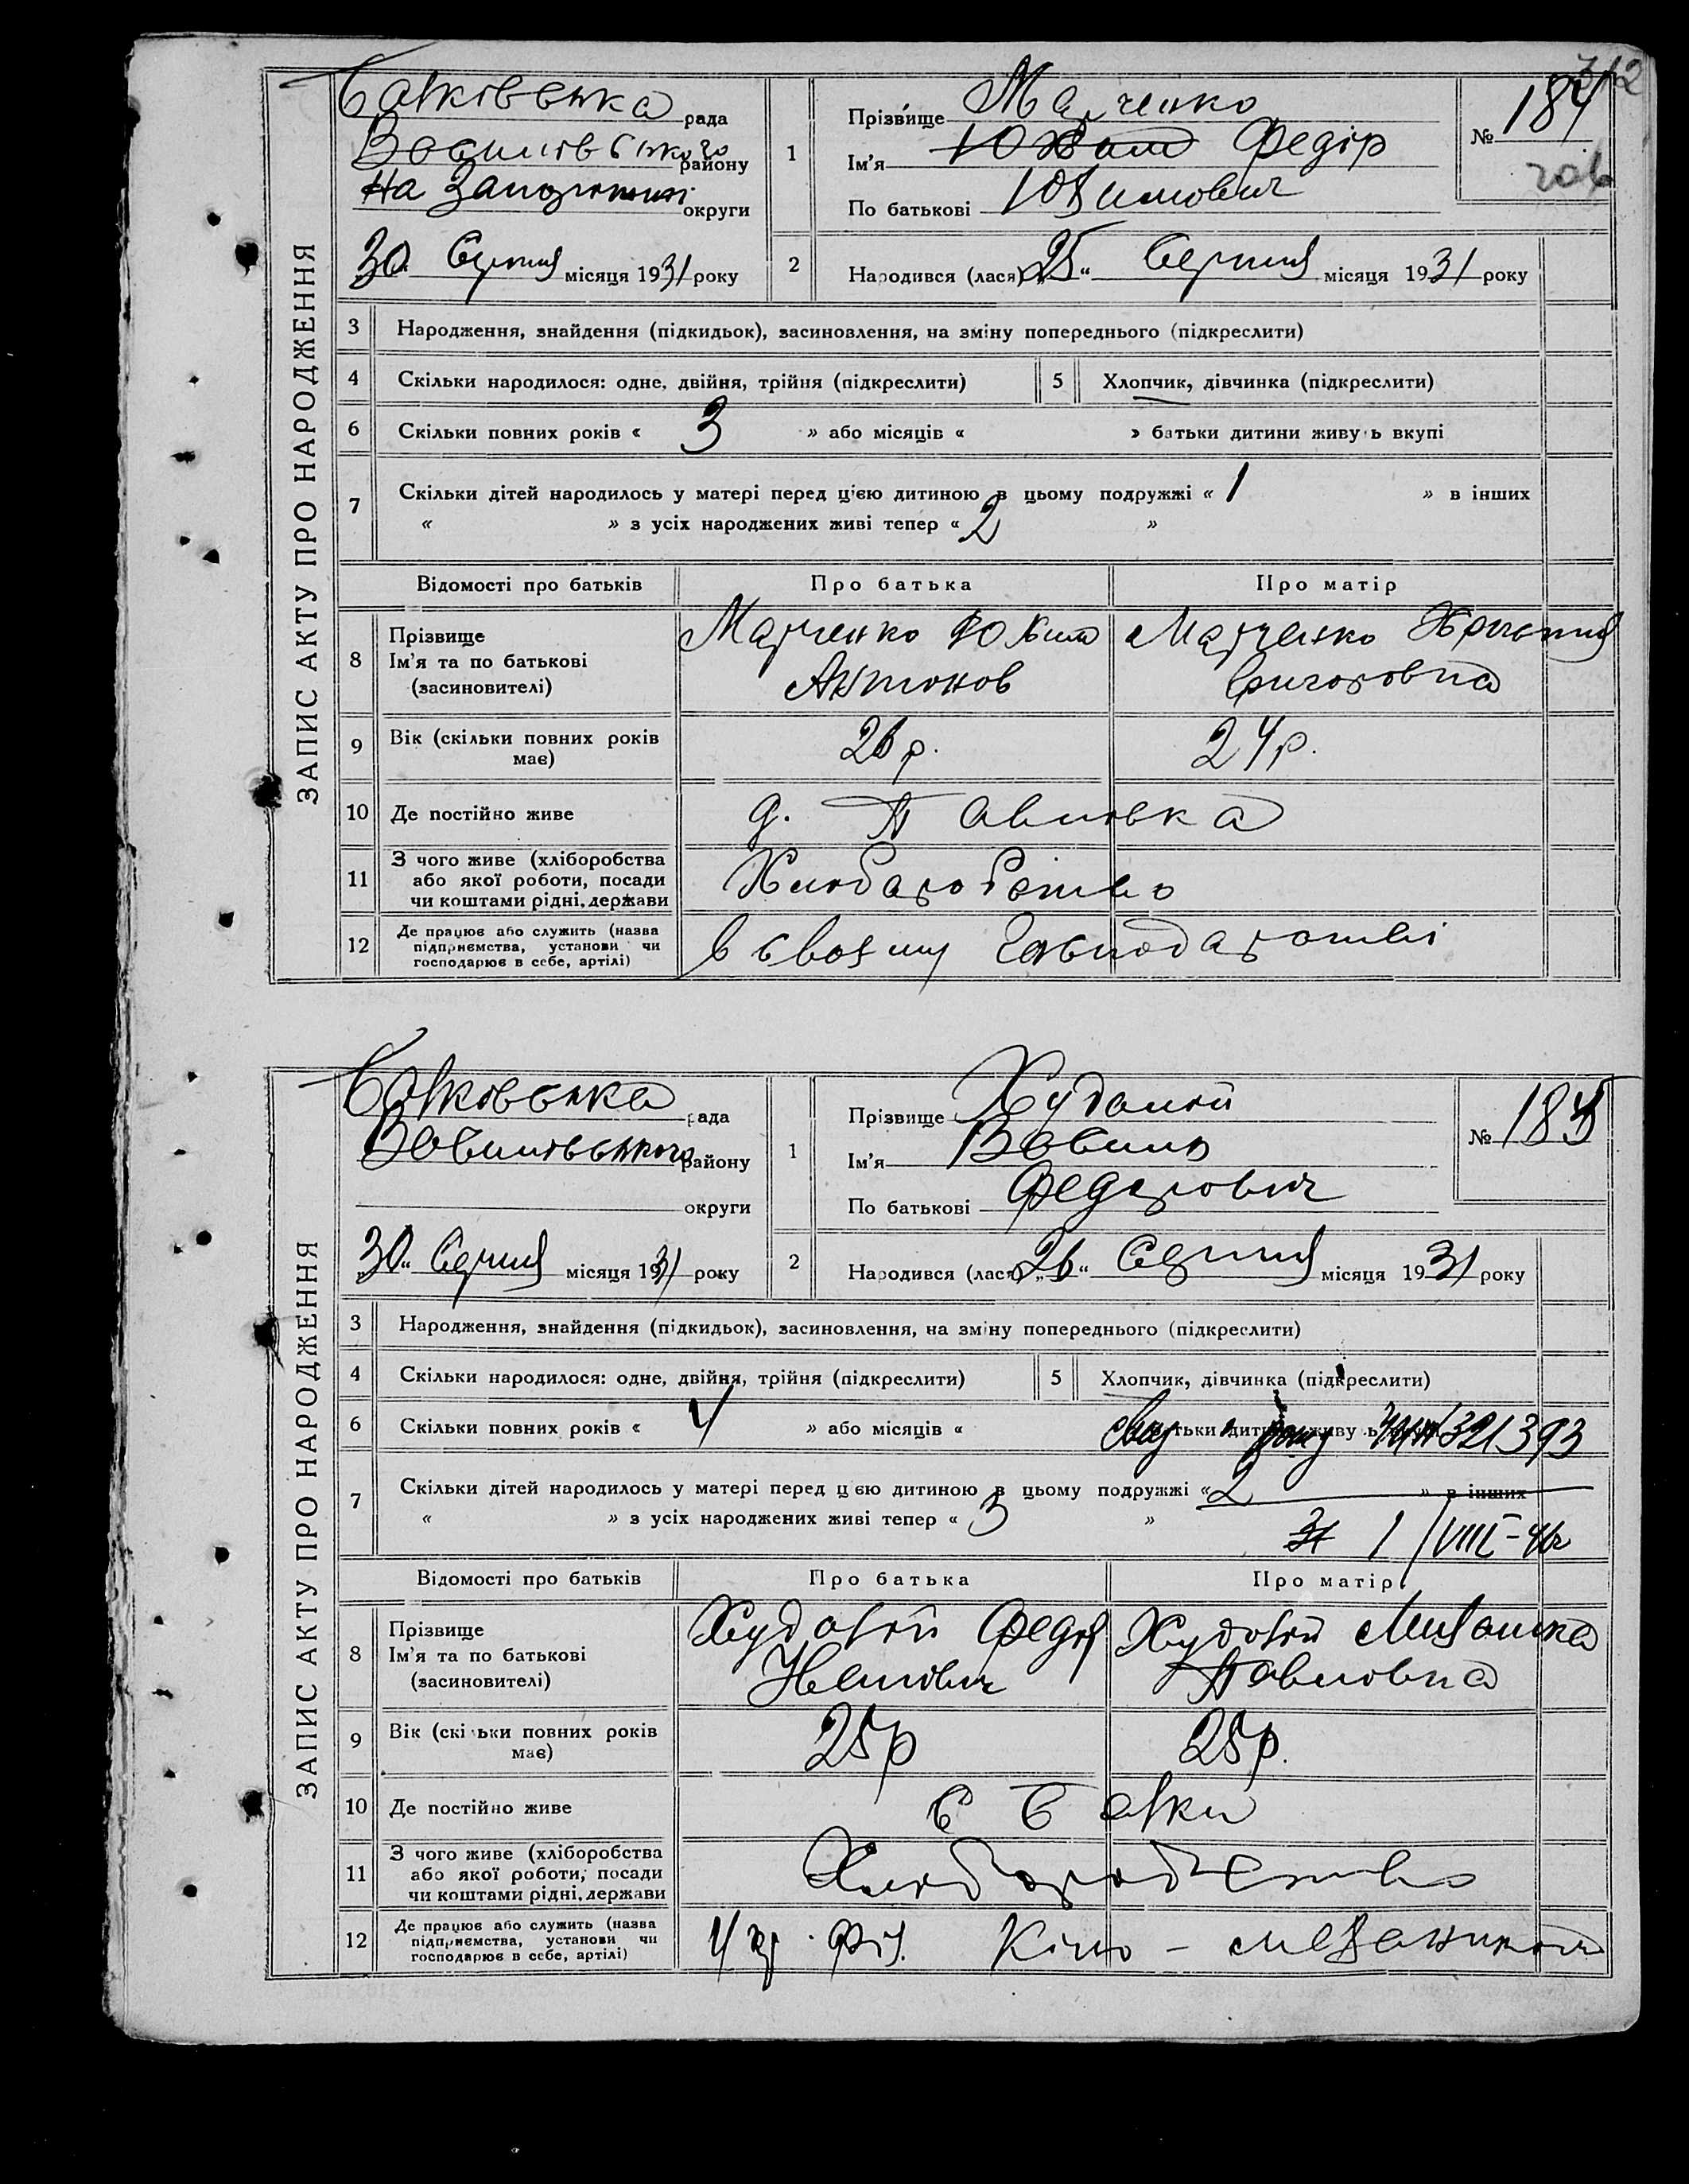 ЗАПИС АКТУ ПРО НАРОДЖЕННЯ
Балківська рада
Василівського району
на Запоріжжі округи
30 Серпня місяця 1931 року
1
Прізвище Марченко
Ім'я Юхим Федір
По батькові Юхимович
№ 184
2
Народився (лася) „25“ Серпня місяця 1931 року
3 Народження, знайдення (підкидьок), засиновлення, на зміну попереднього (підкреслити)
4 Скільки народилося: одне, двійня, трійня (підкреслити)
5 Хлопчик, дівчинка (підкреслити)
6 Скільки повних років « 3 » або місяців « » батьки дитини живуть вкупі
7 Скільки дітей народилось у матері перед цією дитиною в цьому подружжі « 1 » в інших
« » з усіх народжених живі тепер « 2 »
Відомості про батьків Про батька Про матір
8 Прізвище
Ім'я та по батькові
(засиновителі)
Марченко Юхим
Антонов
Марченко
Григоровна
9 Вік (скільки повних років
має)
26 р. 24 р.
10 Де постійно живе
д. Павлівка
11 З чого живе (хліборобства
або якої роботи, посади
чи коштами рідні, держави
Хліборобство
12 Де працює або служить (назва
підприємства, установи чи
господарює в себе, артілі)
в своєму господарстві
ЗАПИС АКТУ ПРО НАРОДЖЕННЯ
Балківська рада
Василівського району
округи
30 Серпня місяця 1931 року
1
Прізвище
Ім'я Василь
По батькові Федорович
№ 185
2
Народився (лася) „26“ Серпня місяця 1931 року
3 Народження, знайдення (підкидьок), засиновлення, на зміну попереднього (підкреслити)
4 Скільки народилося: одне, двійня, трійня (підкреслити)
5 Хлопчик, дівчинка (підкреслити)
6 Скільки повних років « 4 » або місяців « батьки дитини живуть 321393
7 Скільки дітей народилось у матері перед цією дитиною в цьому подружжі « 2 » в інших
« » з усіх народжених живі тепер « 3 »
Відомості про батьків Про батька Про матір
8 Прізвище
Ім'я та по батькові
(засиновителі)
Павловна
9 Вік (скільки повних років
має)
25р 25р.
10 Де постійно живе
с Балки
11 З чого живе (хліборобства
або якої роботи, посади
чи коштами рідні, держави
Хліборобство
12 Де працює або служить (назва
підприємства, установи чи
господарює в себе, артілі)
Кіно - механиком